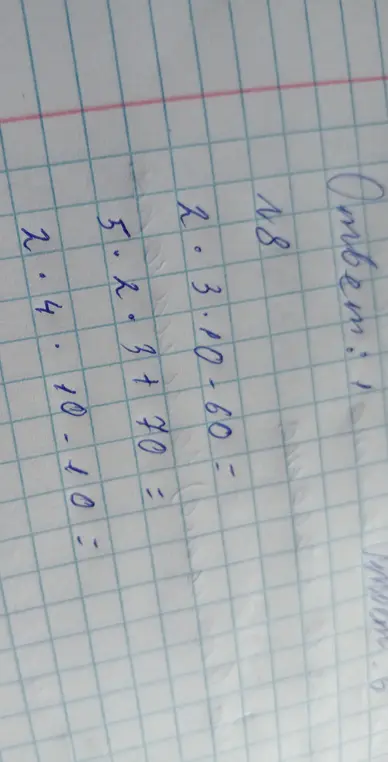 Ответ: 1
N8
2 · 3 · 10 - 60 =
5 · 2 · 3 + 70 =
2 · 4 · 10 - 10 =